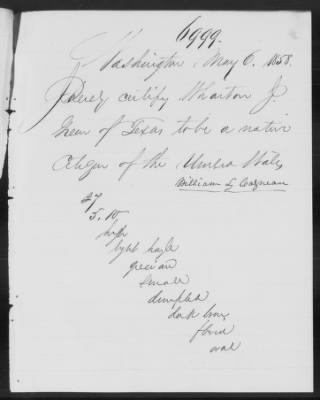 6999.
Washington, May 6. 1858.
I hereby certify Wharton J.
Green of Texas to be a native
Citizen of the United States
William L Cazneau
27
5.10
high
light hazle
grecian
small
dimpled
dark brown
florid
oval